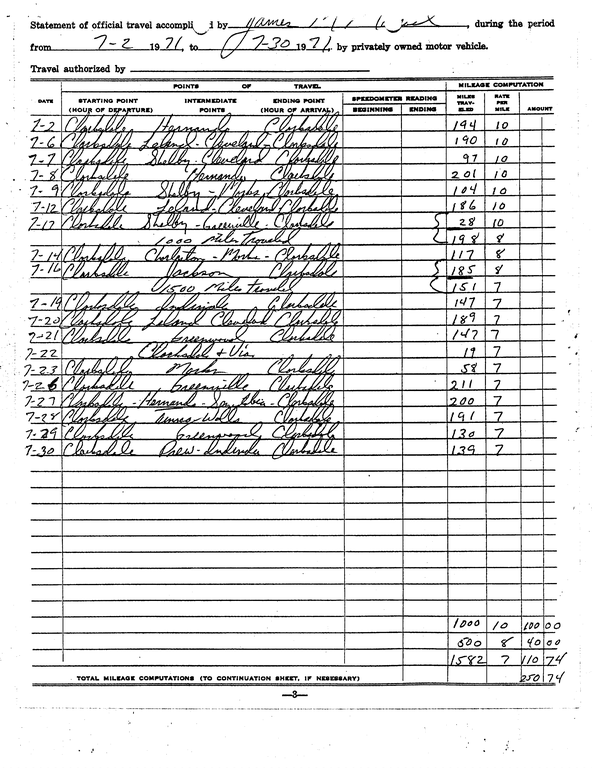 Statement of official travel accompli d by James , during the period
from 7-2 1971, to 7-30 1971, by privately owned motor vehicle.
Travel authorized by
POINTS OF TRAVEL MILEAGE COMPUTATION
DATE STARTING POINT (HOUR OF DEPARTURE) INTERMEDIATE POINTS ENDING POINT (HOUR OF ARRIVAL) SPEEDOMETER READING BEGINNING ENDING MILES TRAV- ELED RATE PER MILE AMOUNT
7-2 Clarksdale Hernando Clarksdale 194 10
7-6 Clarksdale Leland - Cleveland - Clarksdale 190 10
7-7 Clarksdale Shelby - Cleveland Clarksdale 97 10
7-8 Clarksdale Hernando Clarksdale 201 10
7-9 Clarksdale Shelby - Marks, Clarksdale 104 10
7-12 Clarksdale Leland - Cleveland Clarksdale 186 10
7-17 Clarksdale Shelby - Greenville - Clarksdale 28 10
1000 Miles Traveled 198 8
7-14 Clarksdale Charleston - Marks - Clarksdale 117 8
7-16 Clarksdale Jackson Clarksdale 185 8
1500 Miles traveled 151 7
7-19 Clarksdale Clarksdale 147 7
7-20 Clarksdale Leland Cleveland Clarksdale 189 7
7-21 Clarksdale Greenwood Clarksdale 147 7
7-22 Clarksdale + Vic. 19 7
7-23 Clarksdale Marks Clarksdale 58 7
7-26 Clarksdale Greenville Clarksdale 211 7
7-27 Clarksdale - Hernando - Senatobia - Clarksdale 200 7
7-28 Clarksdale Tunica - Walls Clarksdale 191 7
7-29 Clarksdale Greenwood Clarksdale 130 7
7-30 Clarksdale Drew - Clarksdale 139 7
1000 10 100 00
500 8 40 00
1582 7 110 74
TOTAL MILEAGE COMPUTATIONS (TO CONTINUATION SHEET, IF NESESSARY) 250 74
—3—